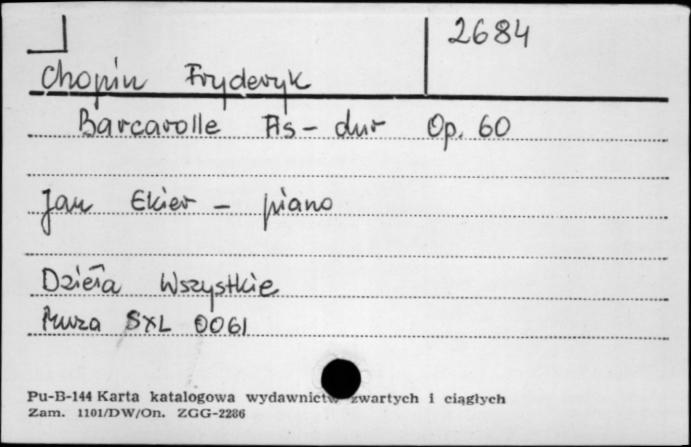 2684
Chopin Fryderyk
Barcarolle Fis - dur Op. 60
Jan Ekier - piano
Dzieła Wszystkie
Muza SXL 0061
Pu-B-144 Karta katalogowa wydawnictw zwartych i ciągłych
Zam. 1101/DW/On. ZGG-2286